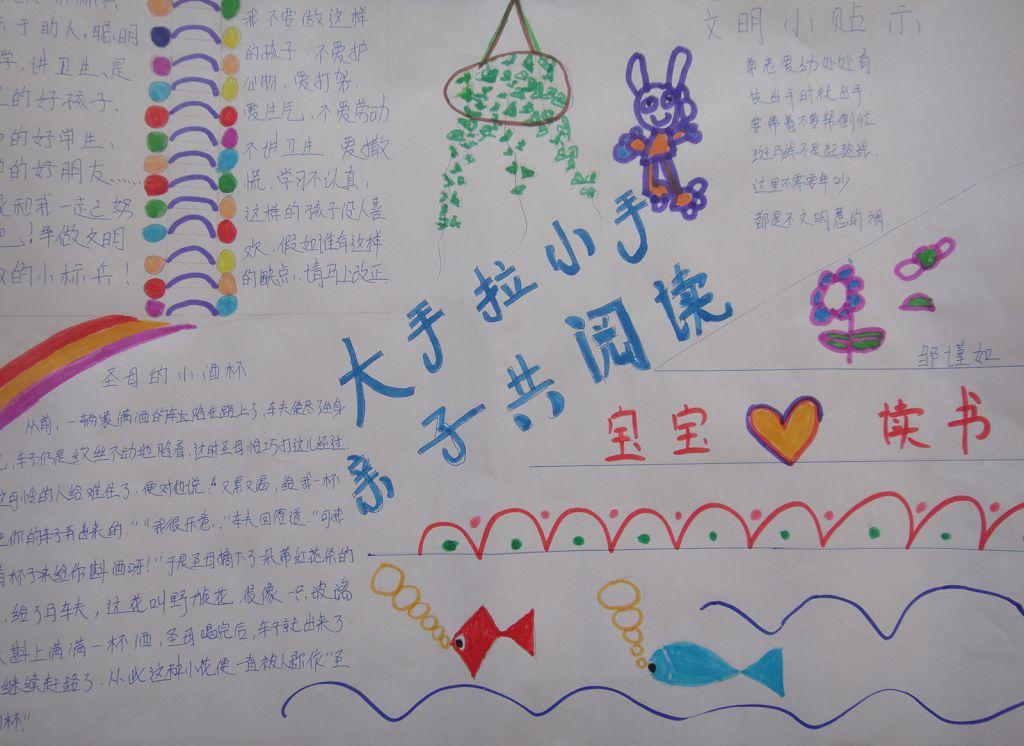 乐于助人,聪明
学,讲卫生、是
的好孩子、
的好学生,
的好朋友……
和我一起己努
吧!争做文明
的小标兵!
我不要做这样
的孩子 不爱护
公物,爱打架.
爱生气,不爱劳动
不讲卫生.爱撒
慌.学习不认真,
这样的孩子没人喜
欢.假如谁有这样
的缺点、请马上改正
文明小贴示
尊老爱幼处处有.
该出手时就出手.
要带着不要帮倒忙
斑马线不是起跑线.
这里不需要
都是不文明惹的祸.
大手拉小手
亲子共阅读
邹谨如
宝宝 读书
圣母的小酒杯
从前,一辆装满酒的车陷在路上了,车夫使尽了全身
,车子仍是纹丝不动地陷着.这时圣母恰巧打这儿经过
可怜的人给难住了.便对他说:“又累又渴,给我一杯
你的车子弄出来的.”“我很乐意,”车夫回答道.“可我
有杯子来给你斟酒呀!”于是圣母摘下了朵带红花条的
、给了马车夫,这花叫野旋花.很像一只玻璃
斟上满满一杯酒,圣母喝完后,车子就出来了.
继续赶路了.从此这种小花便一直被人称作“圣
杯”